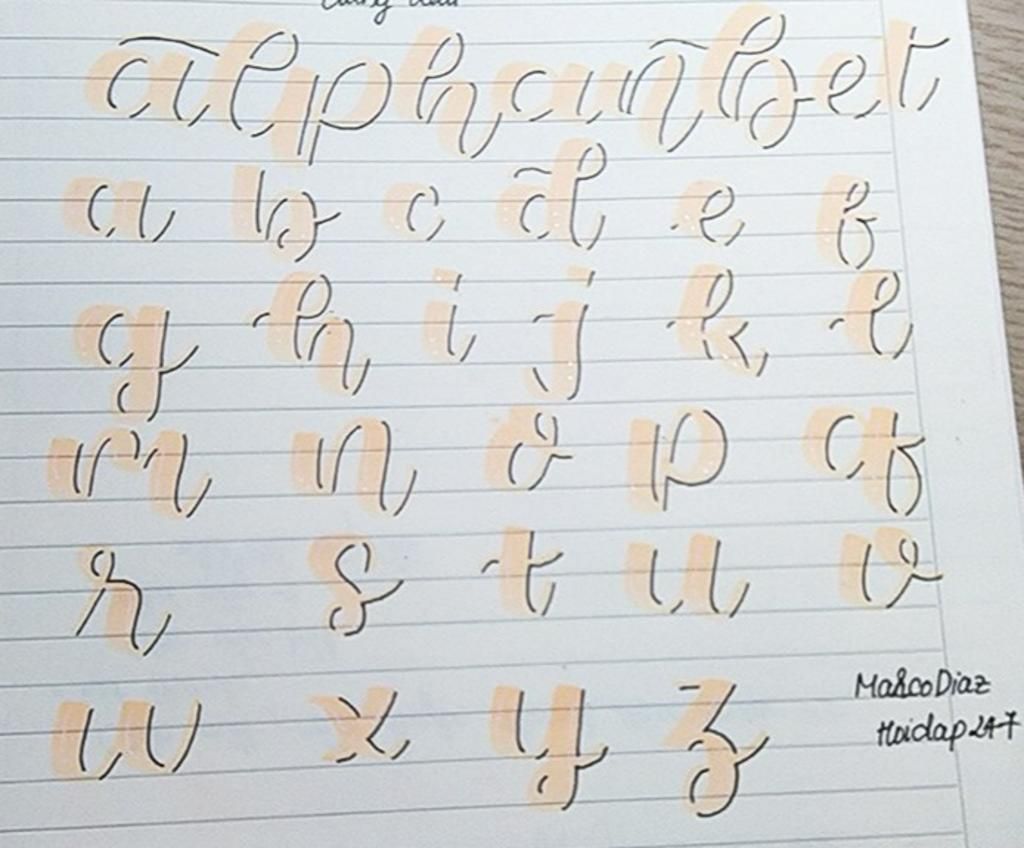 alphanbet
a b c d e f
g h i j k l
m n o p q
r s t u v
w x y z
MarcoDiaz
Hoidap247